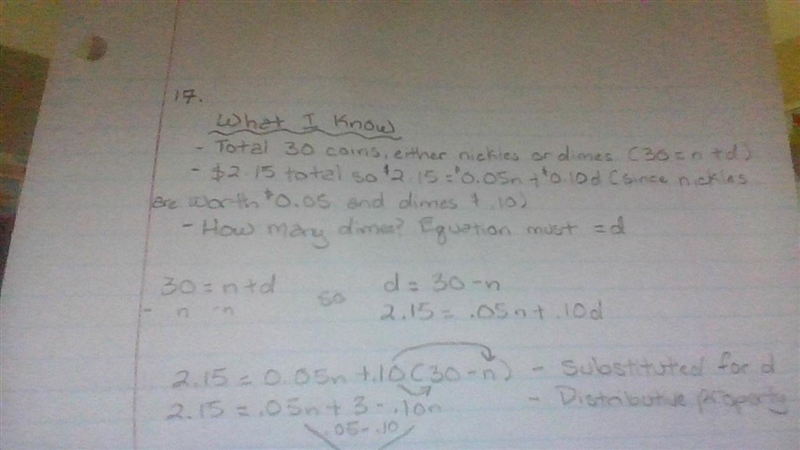 17.
What I Know
- Total 30 coins, either nickles or dimes (30 = n + d)
- $2.15 total so $2.15 = $0.05n + $0.10d (since nickles
are worth $0.05 and dimes $.10)
- How many dimes? Equation must = d
30 = n + d so d = 30 - n
- n -n 2.15 = .05n + .10d
2.15 = 0.05n + .10(30 - n) - Substituted for d
2.15 = .05n + 3 - .10n - Distributive property
.05 - .10